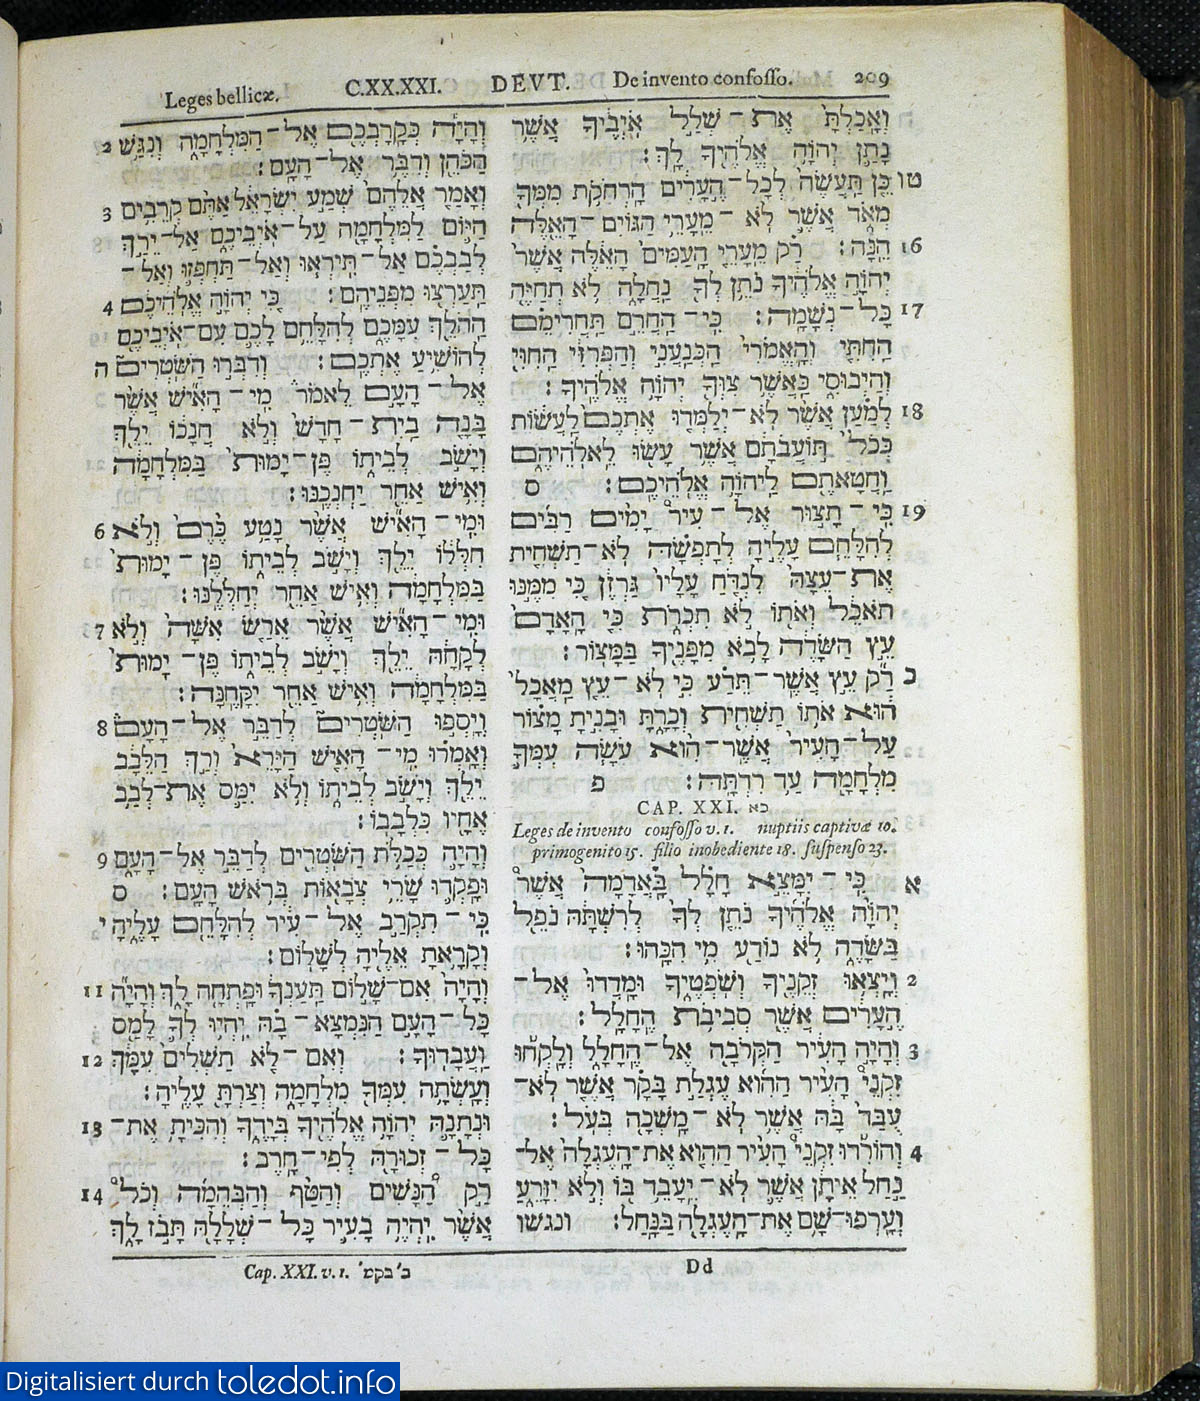 Leges bellicæ. C.XX.XXI. DEVT. De invento confosso. 209
2 וְהָיָה כְּקָרָבְכֶם אֶל־הַמִּלְחָמָה וְנִגַּשׁ
הַכֹּהֵן וְדִבֶּר אֶל־הָעָם׃
3 וְאָמַר אֲלֵהֶם שְׁמַע יִשְׂרָאֵל אַתֶּם קְרֵבִים
הַיּוֹם לַמִּלְחָמָה עַל־אֹיְבֵיכֶם אַל־יֵרַךְ
לְבַבְכֶם אַל־תִּירְאוּ וְאַל־תַּחְפְּזוּ וְאַל־
4 תַּעַרְצוּ מִפְּנֵיהֶם׃ כִּי יְהוָֹה אֱלֹהֵיכֶם
הַהֹלֵךְ עִמָּכֶם לְהִלָּחֵם לָכֶם עִם־אֹיְבֵיכֶם
ה לְהוֹשִׁיעַ אֶתְכֶם׃ וְדִבְּרוּ הַשֹּׁטְרִים
אֶל־הָעָם לֵאמֹר מִי־הָאִישׁ אֲשֶׁר
בָּנָה בַיִת־חָדָשׁ וְלֹא חֲנָכוֹ יֵלֵךְ
וְיָשֹׁב לְבֵיתוֹ פֶּן־יָמוּת בַּמִּלְחָמָה
וְאִישׁ אַחֵר יַחְנְכֶנּוּ׃
6 וּמִי־הָאִישׁ אֲשֶׁר נָטַע כֶּרֶם וְלֹא
חִלְּלוֹ יֵלֵךְ וְיָשֹׁב לְבֵיתוֹ פֶּן־יָמוּת
בַּמִּלְחָמָה וְאִישׁ אַחֵר יְחַלְּלֶנּוּ׃
7 וּמִי־הָאִישׁ אֲשֶׁר אֵרַשׂ אִשָּׁה וְלֹא
לְקָחָהּ יֵלֵךְ וְיָשֹׁב לְבֵיתוֹ פֶּן־יָמוּת
בַּמִּלְחָמָה וְאִישׁ אַחֵר יִקָּחֶנָּה׃
8 וְיָסְפוּ הַשֹּׁטְרִים לְדַבֵּר אֶל־הָעָם
וְאָמְרוּ מִי־הָאִישׁ הַיָּרֵא וְרַךְ הַלֵּבָב
יֵלֵךְ וְיָשֹׁב לְבֵיתוֹ וְלֹא יִמַּס אֶת־לְבַב
אֶחָיו כִּלְבָבוֹ׃
9 וְהָיָה כְּכַלֹּת הַשֹּׁטְרִים לְדַבֵּר אֶל־הָעָם
וּפָקְדוּ שָׂרֵי צְבָאוֹת בְּרֹאשׁ הָעָם׃ ס
י כִּי־תִקְרַב אֶל־עִיר לְהִלָּחֵם עָלֶיהָ
וְקָרָאתָ אֵלֶיהָ לְשָׁלוֹם׃
11 וְהָיָה אִם־שָׁלוֹם תַּעַנְךָ וּפָתְחָה לָךְ וְהָיָה
כָּל־הָעָם הַנִּמְצָא־בָהּ יִהְיוּ לְךָ לָמַס
12 וַעֲבָדוּךָ׃ וְאִם־לֹא תַשְׁלִים עִמָּךְ
וְעָשְׂתָה עִמְּךָ מִלְחָמָה וְצַרְתָּ עָלֶיהָ׃
13 וּנְתָנָהּ יְהוָֹה אֱלֹהֶיךָ בְּיָדֶךָ וְהִכִּיתָ אֶת־
כָּל־זְכוּרָהּ לְפִי־חָרֶב׃
14 רַק הַנָּשִׁים וְהַטַּף וְהַבְּהֵמָה וְכֹל
אֲשֶׁר יִהְיֶה בָעִיר כָּל־שְׁלָלָהּ תָּבֹז לָךְ
וְאָכַלְתָּ אֶת־שְׁלַל אֹיְבֶיךָ אֲשֶׁר
נָתַן יְהוָֹה אֱלֹהֶיךָ לָךְ׃
טו כֵּן תַּעֲשֶׂה לְכָל־הֶעָרִים הָרְחֹקֹת מִמְּךָ
מְאֹד אֲשֶׁר לֹא־מֵעָרֵי הַגּוֹיִם־הָאֵלֶּה
16 הֵנָּה׃ רַק מֵעָרֵי הָעַמִּים הָאֵלֶּה אֲשֶׁר
יְהוָֹה אֱלֹהֶיךָ נֹתֵן לְךָ נַחֲלָה לֹא תְחַיֶּה
17 כָּל־נְשָׁמָה׃ כִּי־הַחֲרֵם תַּחֲרִימֵם
הַחִתִּי וְהָאֱמֹרִי הַכְּנַעֲנִי וְהַפְּרִזִּי הַחִוִּי
וְהַיְבוּסִי כַּאֲשֶׁר צִוְּךָ יְהוָֹה אֱלֹהֶיךָ׃
18 לְמַעַן אֲשֶׁר לֹא־יְלַמְּדוּ אֶתְכֶם לַעֲשׂוֹת
כְּכֹל תּוֹעֲבֹתָם אֲשֶׁר עָשׂוּ לֵאלֹהֵיהֶם
וַחֲטָאתֶם לַיהוָֹה אֱלֹהֵיכֶם׃ ס
19 כִּי־תָצוּר אֶל־עִיר יָמִים רַבִּים
לְהִלָּחֵם עָלֶיהָ לְתָפְשָׂהּ לֹא־תַשְׁחִית
אֶת־עֵצָהּ לִנְדֹּחַ עָלָיו גַּרְזֶן כִּי מִמֶּנּוּ
תֹאכֵל וְאֹתוֹ לֹא תִכְרֹת כִּי הָאָדָם
עֵץ הַשָּׂדֶה לָבֹא מִפָּנֶיךָ בַּמָּצוֹר׃
כ רַק עֵץ אֲשֶׁר־תֵּדַע כִּי לֹא־עֵץ מַאֲכָל
הוּא אֹתוֹ תַשְׁחִית וְכָרָתָּ וּבָנִיתָ מָצוֹר
עַל־הָעִיר אֲשֶׁר־הִוא עֹשָׂה עִמְּךָ
מִלְחָמָה עַד רִדְתָּהּ׃ פ
CAP. XXI. כא
Leges de invento confosso v. 1. nuptiis captivæ 10.
primogenito 15. filio inobediente 18. suspenso 23.
א כִּי־יִמָּצֵא חָלָל בָּאֲדָמָה אֲשֶׁר
יְהוָֹה אֱלֹהֶיךָ נֹתֵן לְךָ לְרִשְׁתָּהּ נֹפֵל
בַּשָּׂדֶה לֹא נוֹדַע מִי הִכָּהוּ׃
2 וְיָצְאוּ זְקֵנֶיךָ וְשֹׁפְטֶיךָ וּמָדְדוּ אֶל־
הֶעָרִים אֲשֶׁר סְבִיבֹת הֶחָלָל׃
3 וְהָיָה הָעִיר הַקְּרֹבָה אֶל־הֶחָלָל וְלָקְחוּ
זִקְנֵי הָעִיר הַהִוא עֶגְלַת בָּקָר אֲשֶׁר לֹא־
עֻבַּד בָּהּ אֲשֶׁר לֹא־מָשְׁכָה בְּעֹל׃
4 וְהוֹרִדוּ זִקְנֵי הָעִיר הַהִוא אֶת־הָעֶגְלָה אֶל־
נַחַל אֵיתָן אֲשֶׁר לֹא־יֵעָבֵד בּוֹ וְלֹא יִזָּרֵעַ
וְעָרְפוּ־שָׁם אֶת־הָעֶגְלָה בַּנָּחַל׃ ונגשו
Cap. XXI. v. 1. ב׳ בקמ׳
Dd
Digitalisiert durch toledot.info